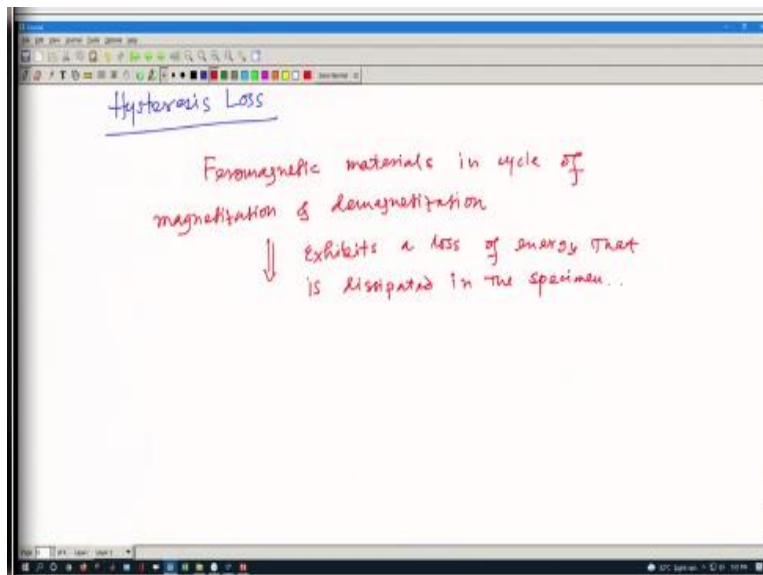 Hysteresis Loss
Ferromagnetic materials in cycle of
magnetization & demagnetization
Exhibits a loss of energy that
is dissipated in the specimen..